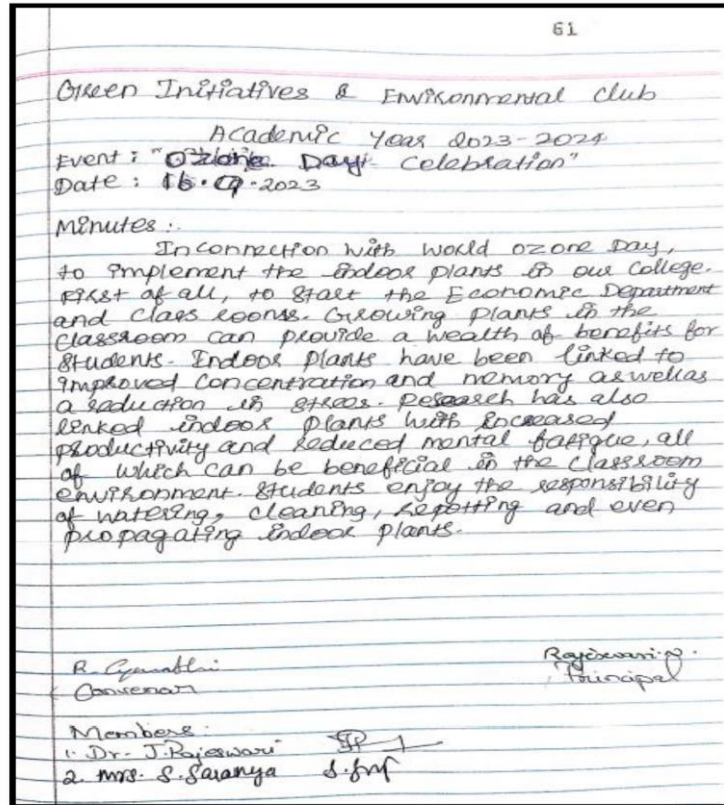 61
Green Initiatives & Environmental club
Academic Year 2023-2024
Event : "Ozone Day Celebration"
Date : 16.09.2023
Minutes :
In connection with World ozone Day,
to implement the indoor plants in our College.
First of all, to Start the Economic Department
and Class rooms. Growing Plants in the
Classroom can provide a wealth of benefits for
Students. Indoor Plants have been linked to
improved Concentration and memory as well as
a reduction in stress. Research has also
linked indoor plants with increased
productivity and reduced mental fatigue, all
of which can be beneficial in the classroom
environment. Students enjoy the responsibility
of watering, cleaning, repotting and even
propagating indoor plants.
Rajeswari.N.
Principal
R.
Convenor
Members :
1. Dr. J. Rajeswari
2. Mrs. S. Saranya